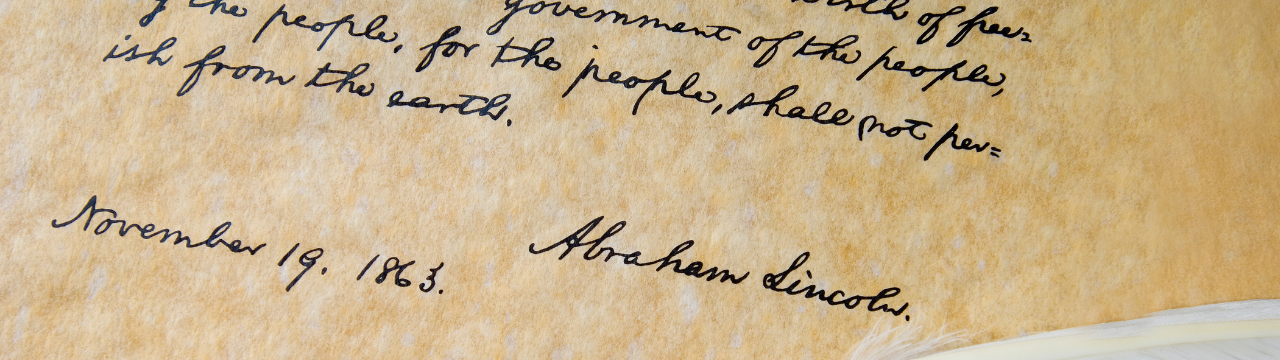 birth of free=
government of the people,
by the people, for the people, shall not per=
ish from the earth.
November 19. 1863.
Abraham Lincoln.